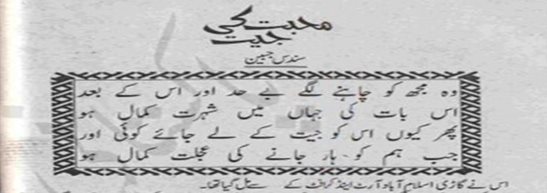 محبت کی جیت
سندس جبین
وہ مجھ کو چاہنے لگے بے حد اور اس کے بعد
اس بات کی جہاں میں شہرت کمال ہو
پھر کیوں اس کو جیت کے لے جائے کوئی اور
جب ہم کو ہار جانے کی عجلت کمال ہو
اس نے گاڑی اسلام آباد آرٹ اینڈ کرافٹ کے